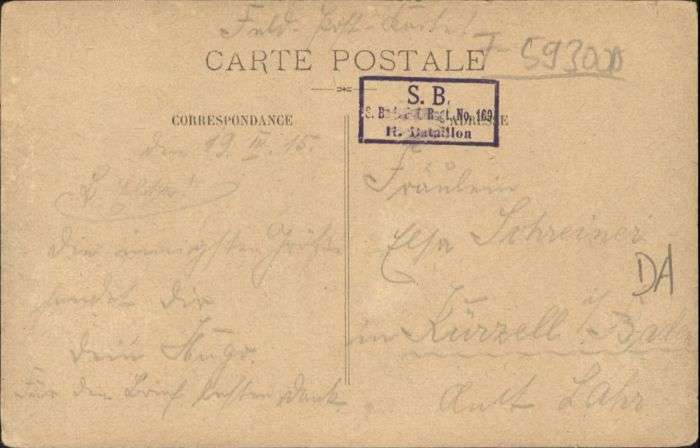 Feld-Post-Karte!
CARTE POSTALE
F 5930
S. B.
Regt. No. 169
II. Bataillon
CORRESPONDANCE
ADRESSE
den 19. IV. 15
L. Elsa!
Die innigsten Grüße
sendet dir
dein Hugo.
Für den Brief besten Dank
Fräulein
Elsa Schreiner
in Kürzell i/Bad.
Amt Lahr
DA